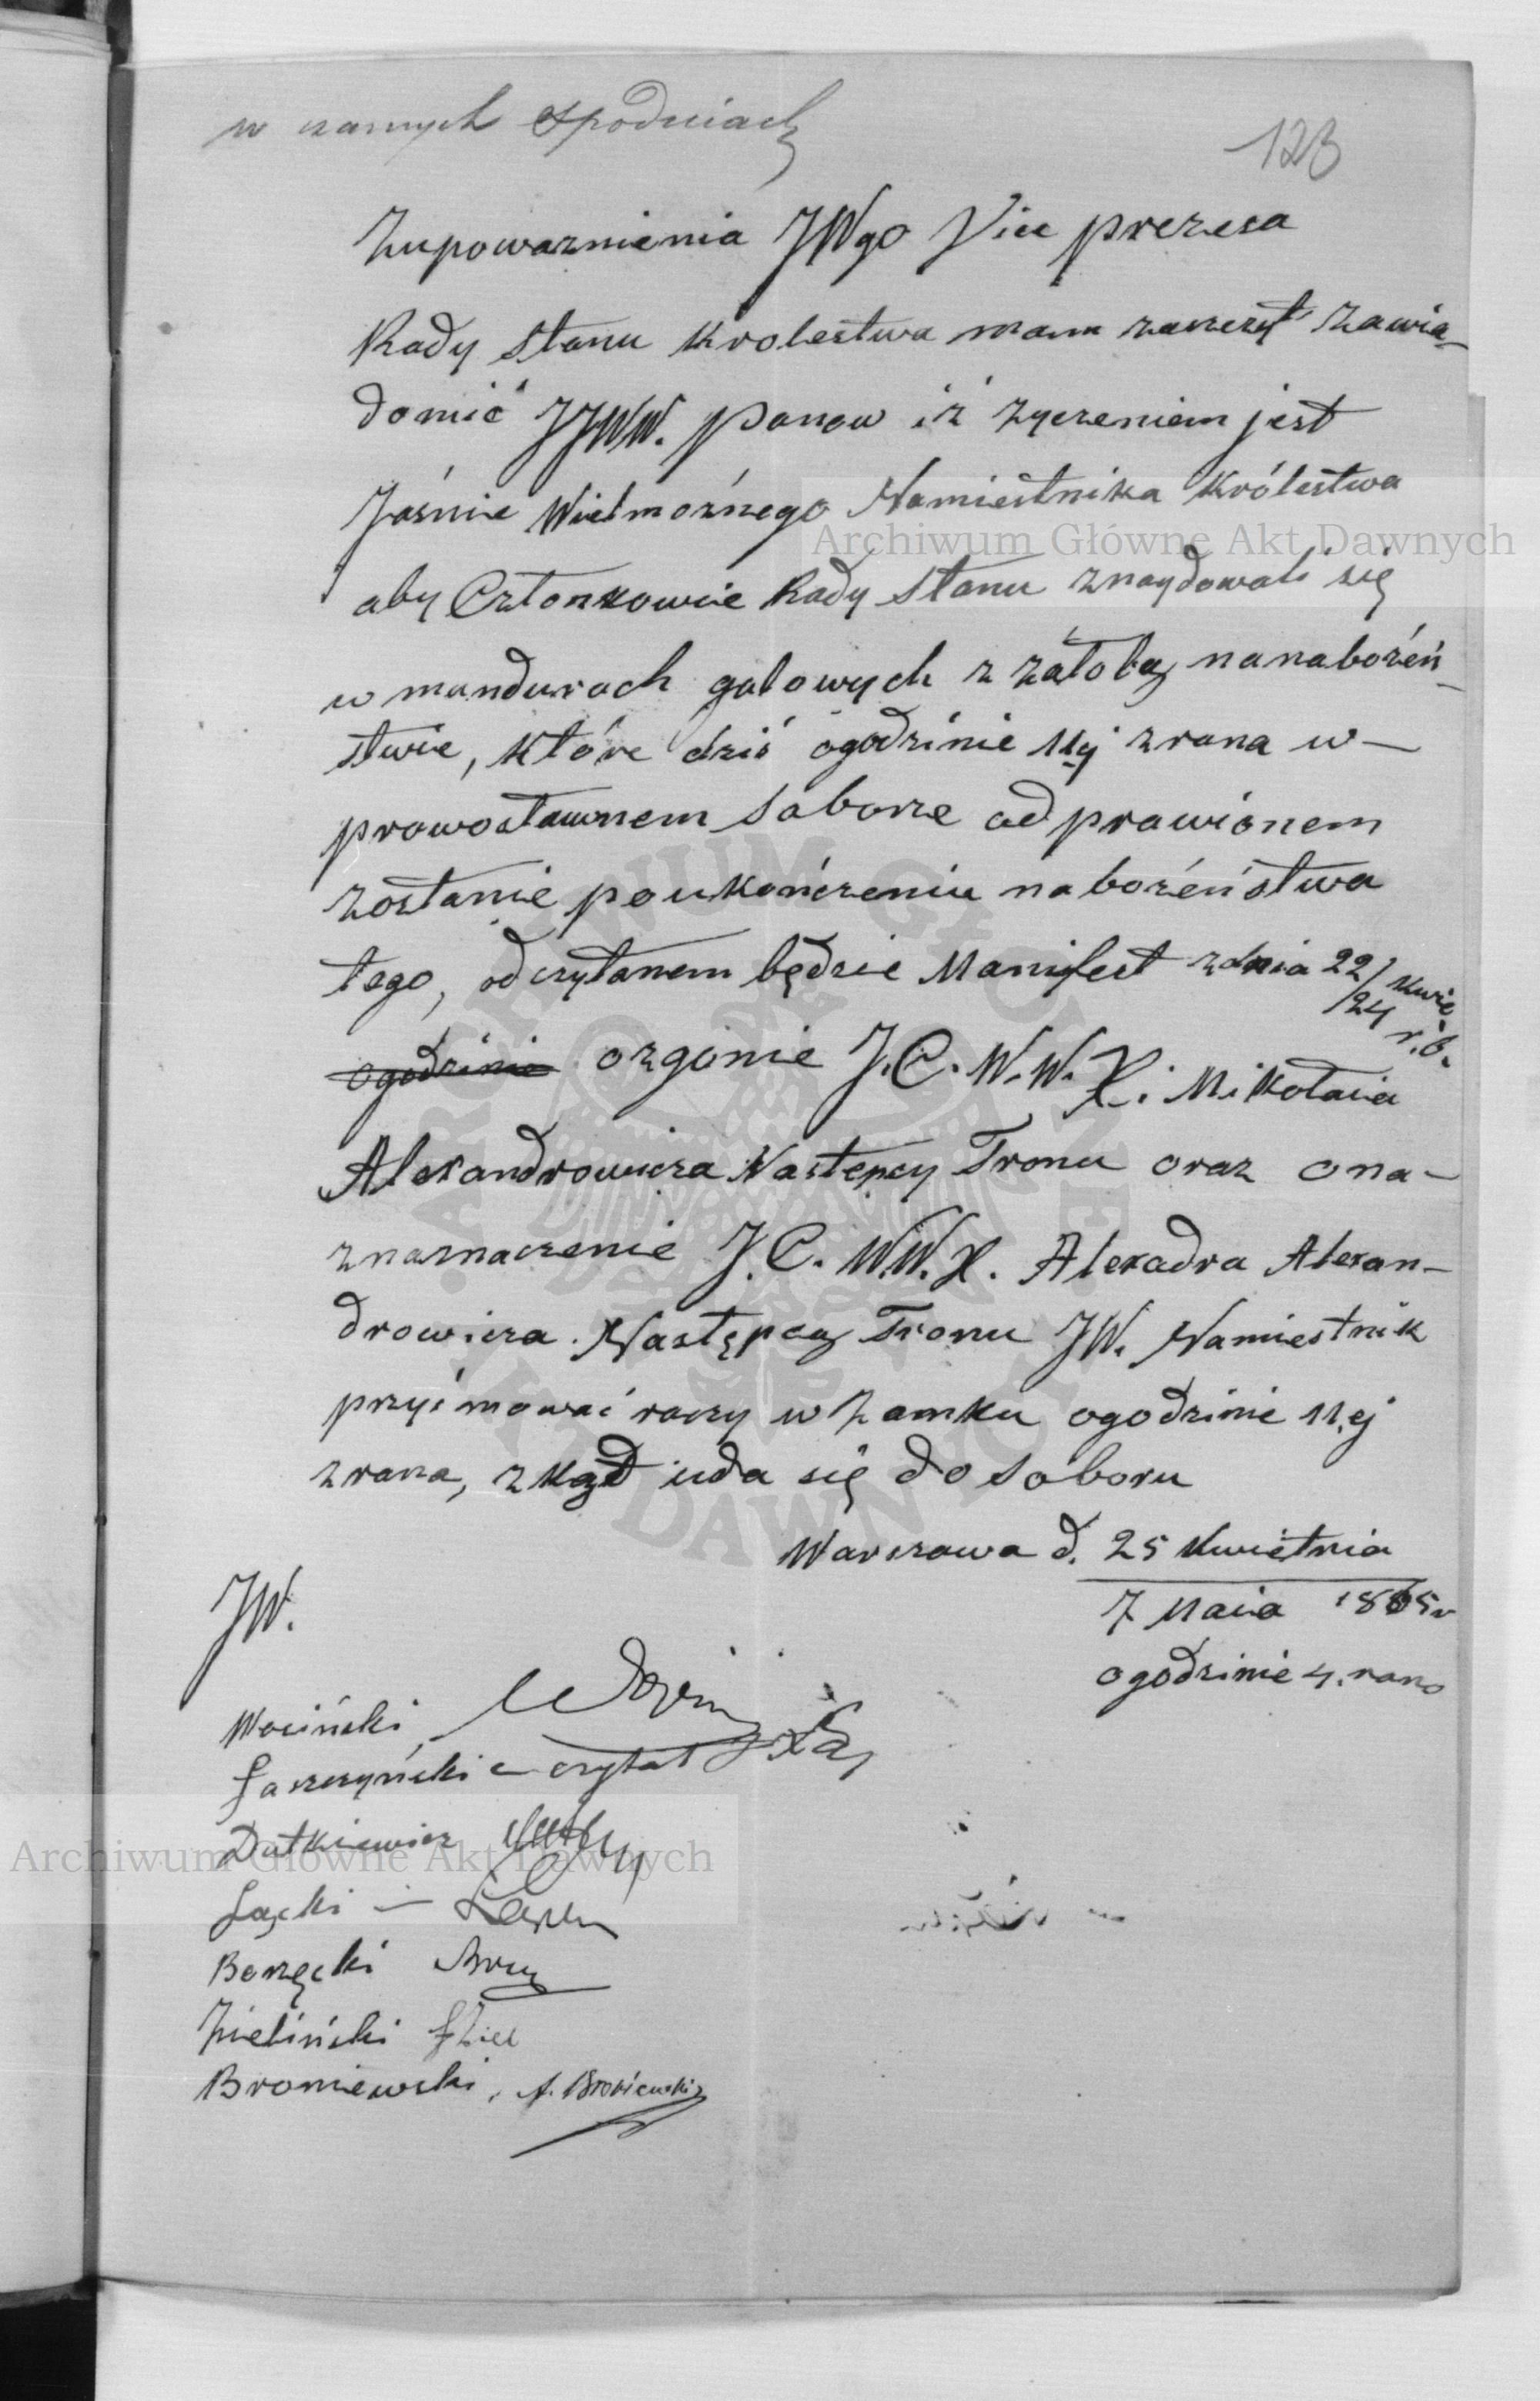 w czarnych spodniach
123
Z upoważnienia JWgo Vice prezesa
Rady Stanu Krolestwa mam zaszczyt zawia-
domić JJWW. Panow iż życzeniem jest
Jaśnie Wielmożnego Namiestnika Królestwa
aby Członkowie Rady Stanu znaydowali się
w mundurach galowych z żałobą na nabożeń-
stwie, które dziś o godzinie 11ej zrana w-
prawosławnem Soborze odprawionem
zostanie po ukończeniu nabożeństwa
tego, odczytanem będzie Manifest z dnia 22/24 Kwie r.b.
o godzinie o zgonie J.C.W.W.X. Mikołaia
Alexandrowicza Następcy Tronu oraz o na-
znaznaczenie J.C.W.W.X. Alexadra Alexan-
drowicza Następcą Tronu JW. Namiestnik
przyimować raczy w Zamku o godzinie 11.ej
zrana, zkąd uda się do Soboru
Warszawa d. 25 Kwietnia
7 Maia 1865 r
o godzinie 4. rano
JW.
Wosiński
Łaszczyński - czytał
Dutkiewicz
Łącki -
Borzęcki
Zieliński
Broniewski, A. Broniewski
Archiwum Główne Akt Dawnych
Archiwum Główne Akt Dawnych
ARCHIWUM GŁÓWNE AKT DAWNYCH